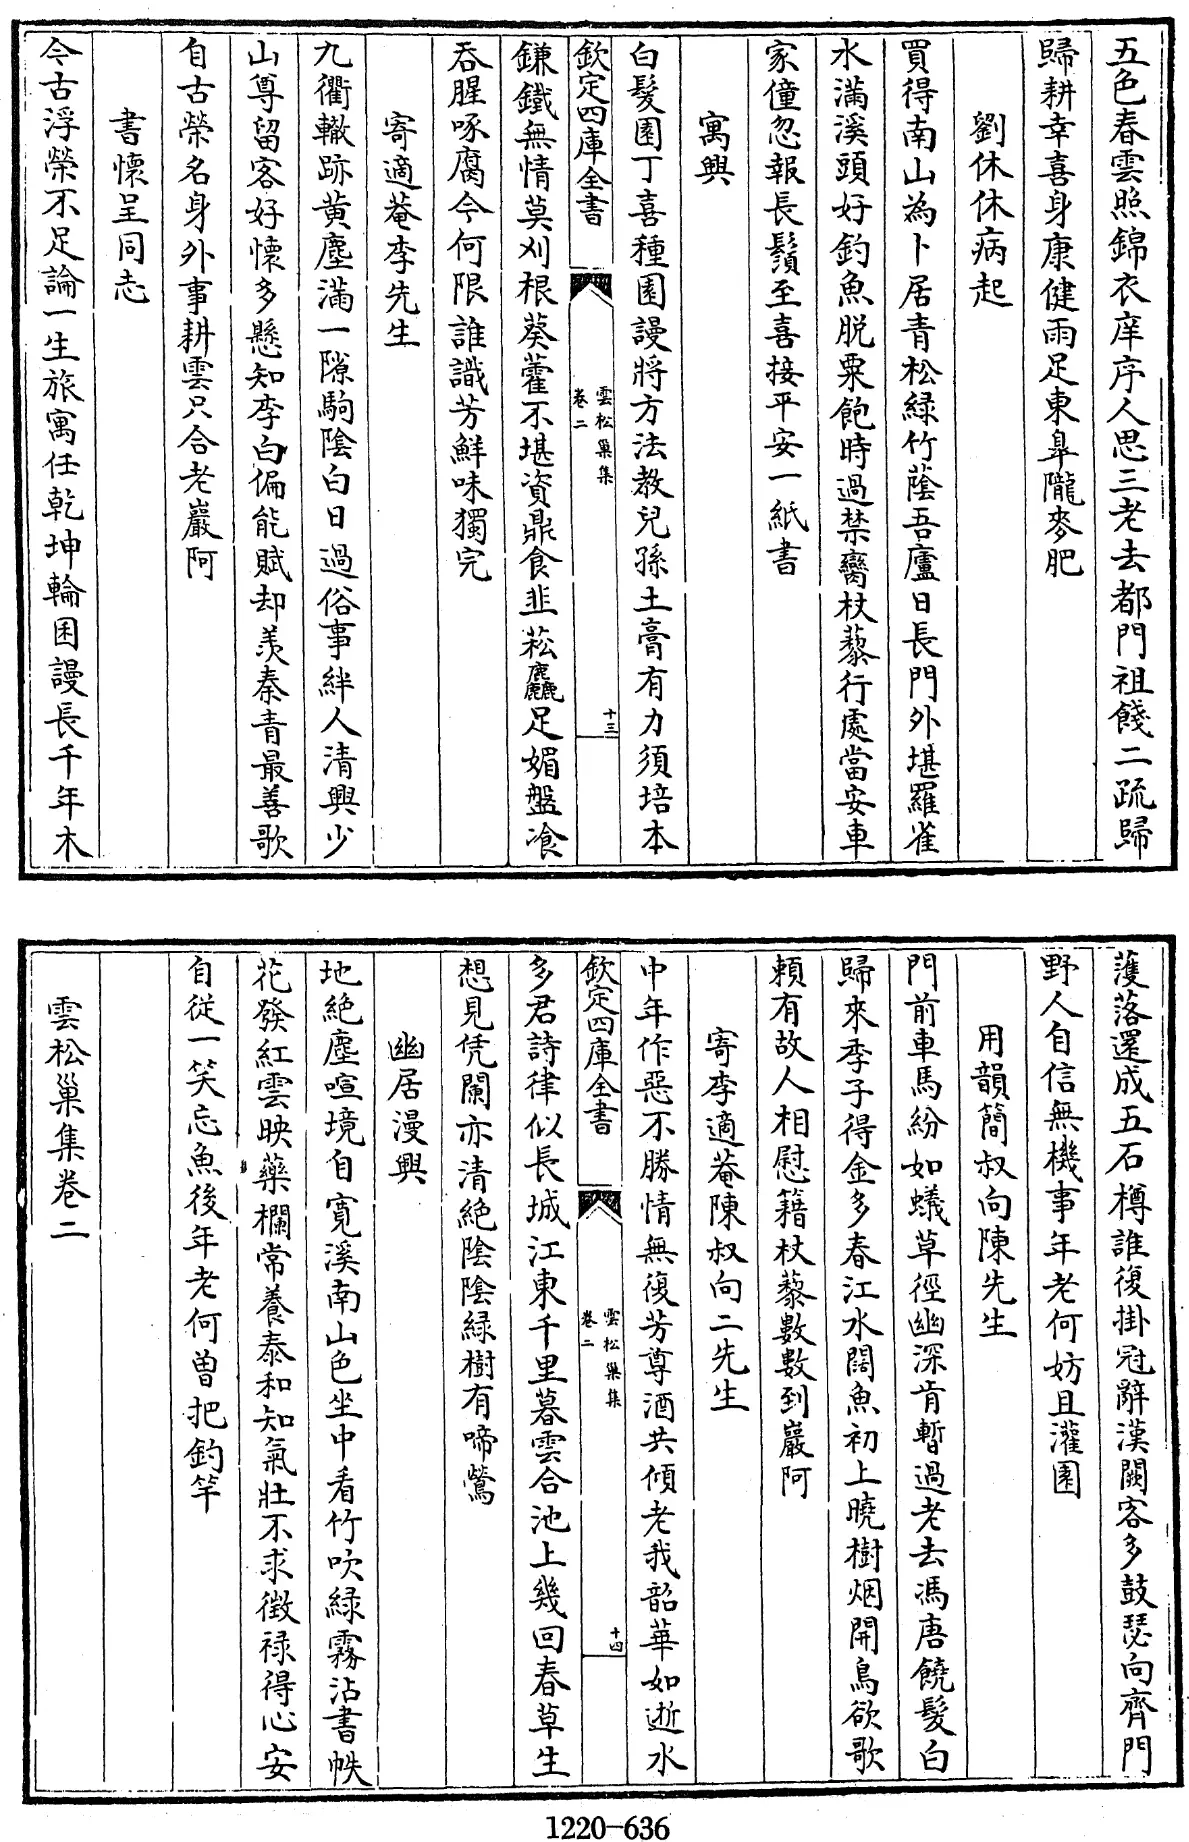 五色春雲照錦衣庠序人思三老去都門祖餞二疏歸
歸耕幸喜身康健雨足東臯隴麥肥
劉休休病起
買得南山為卜居青松緑竹蔭吾廬日長門外堪羅雀
水滿溪頭好釣魚脱粟飽時過禁臠杖藜行處當安車
家僮忽報長鬚至喜接平安一紙書
寓興
白髮園丁喜種園謾將方法教兒孫土膏有力須培本
欽定四庫全書
雲松巢集
卷二
十三
鎌鐵無情莫刈根葵藿不堪資鼎食韭菘麤足媚盤飱
吞腥啄腐今何限誰識芳鮮味獨完
寄適菴李先生
九衢轍跡黄塵滿一隙駒陰白日過俗事絆人清興少
山尊留客好懷多懸知李白偏能賦却羨秦青最善歌
自古榮名身外事耕雲只合老巖阿
書懷呈同志
今古浮榮不足論一生旅寓任乾坤輪囷謾長千年木
濩落還成五石樽誰復掛冠辭漢闕客多鼓瑟向齊門
野人自信無機事年老何妨且灌園
用韻簡叔向陳先生
門前車馬紛如蟻草徑幽深肯暫過老去馮唐饒髮白
歸來季子得金多春江水闊魚初上曉樹烟開鳥欲歌
頼有故人相慰籍杖藜數數到巖阿
寄李適菴陳叔向二先生
中年作惡不勝情無復芳尊酒共傾老我韶華如逝水
欽定四庫全書
雲松巢集
卷二
十四
多君詩律似長城江東千里暮雲合池上幾回春草生
想見凭闌亦清絶陰陰緑樹有啼鶯
幽居漫興
地絶塵喧境自寛溪南山色坐中看竹吹緑霧沾書帙
花發紅雲映藥欄常養泰和知氣壯不求徵禄得心安
自從一笑忘魚後年老何曽把釣竿
雲松巢集卷二
1220-636